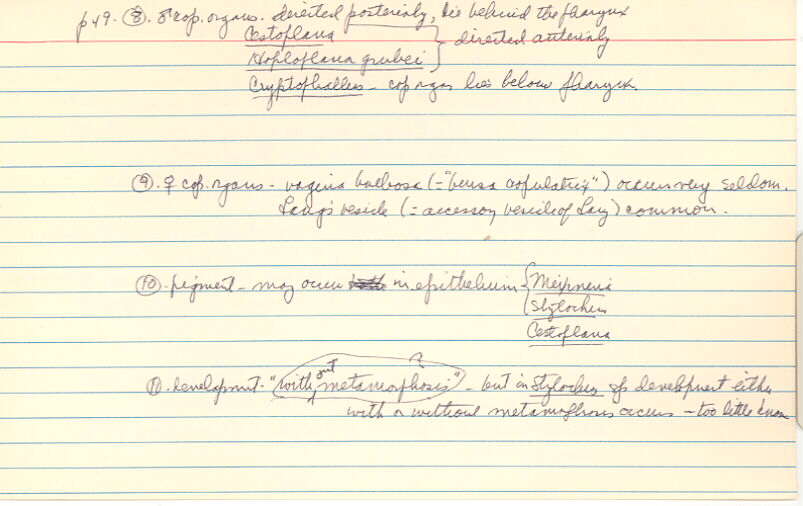 p 49. ⑧. ♂ cop. organs. directed posteriorly, lie behind the pharynx
Cestoplana } directed anteriorly
Hoploplana grubei
Cryptophallus - cop orgas lies below pharynx.
⑨. ♀ cop. organs - vagina bulbosa (="bursa copulatrix") occurs very seldom.
Lang's vesicle (= accessory vesicle of Lang) common.
⑩. pigment - may occur in epithelium { Meixneria
Stylochus
Cestoplana
⑪. development - "without metamorphosis" - but in Stylochus sps development either
with or without metamorphosis occurs - too little known